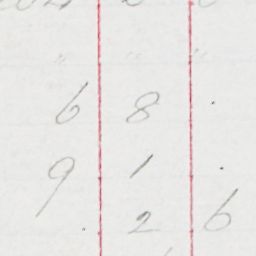 " " "
6 8 .
9 1 .
. 2 6